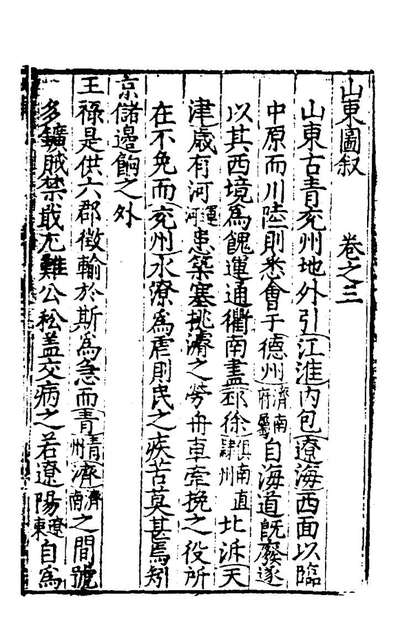 山東圖叙　卷之三
山東古青兖州地外引江淮内包遼海西面以臨
中原而川陸則悉會于德州濟南府屬自海道既廢遂
以其西境為餽運通衢南盡邳徐俱南直隸州北泝天
津歲有河河運患築塞挑濬之勞舟車牽挽之役所
在不免而兖州水潦為虐則民之疾苦莫甚焉矧
京儲邊餉之外
王祿是供六郡徵輸於斯為急而青青州濟濟南之間號
多鑛賊禁戢尤難公私盖交病之若遼陽遼東自為